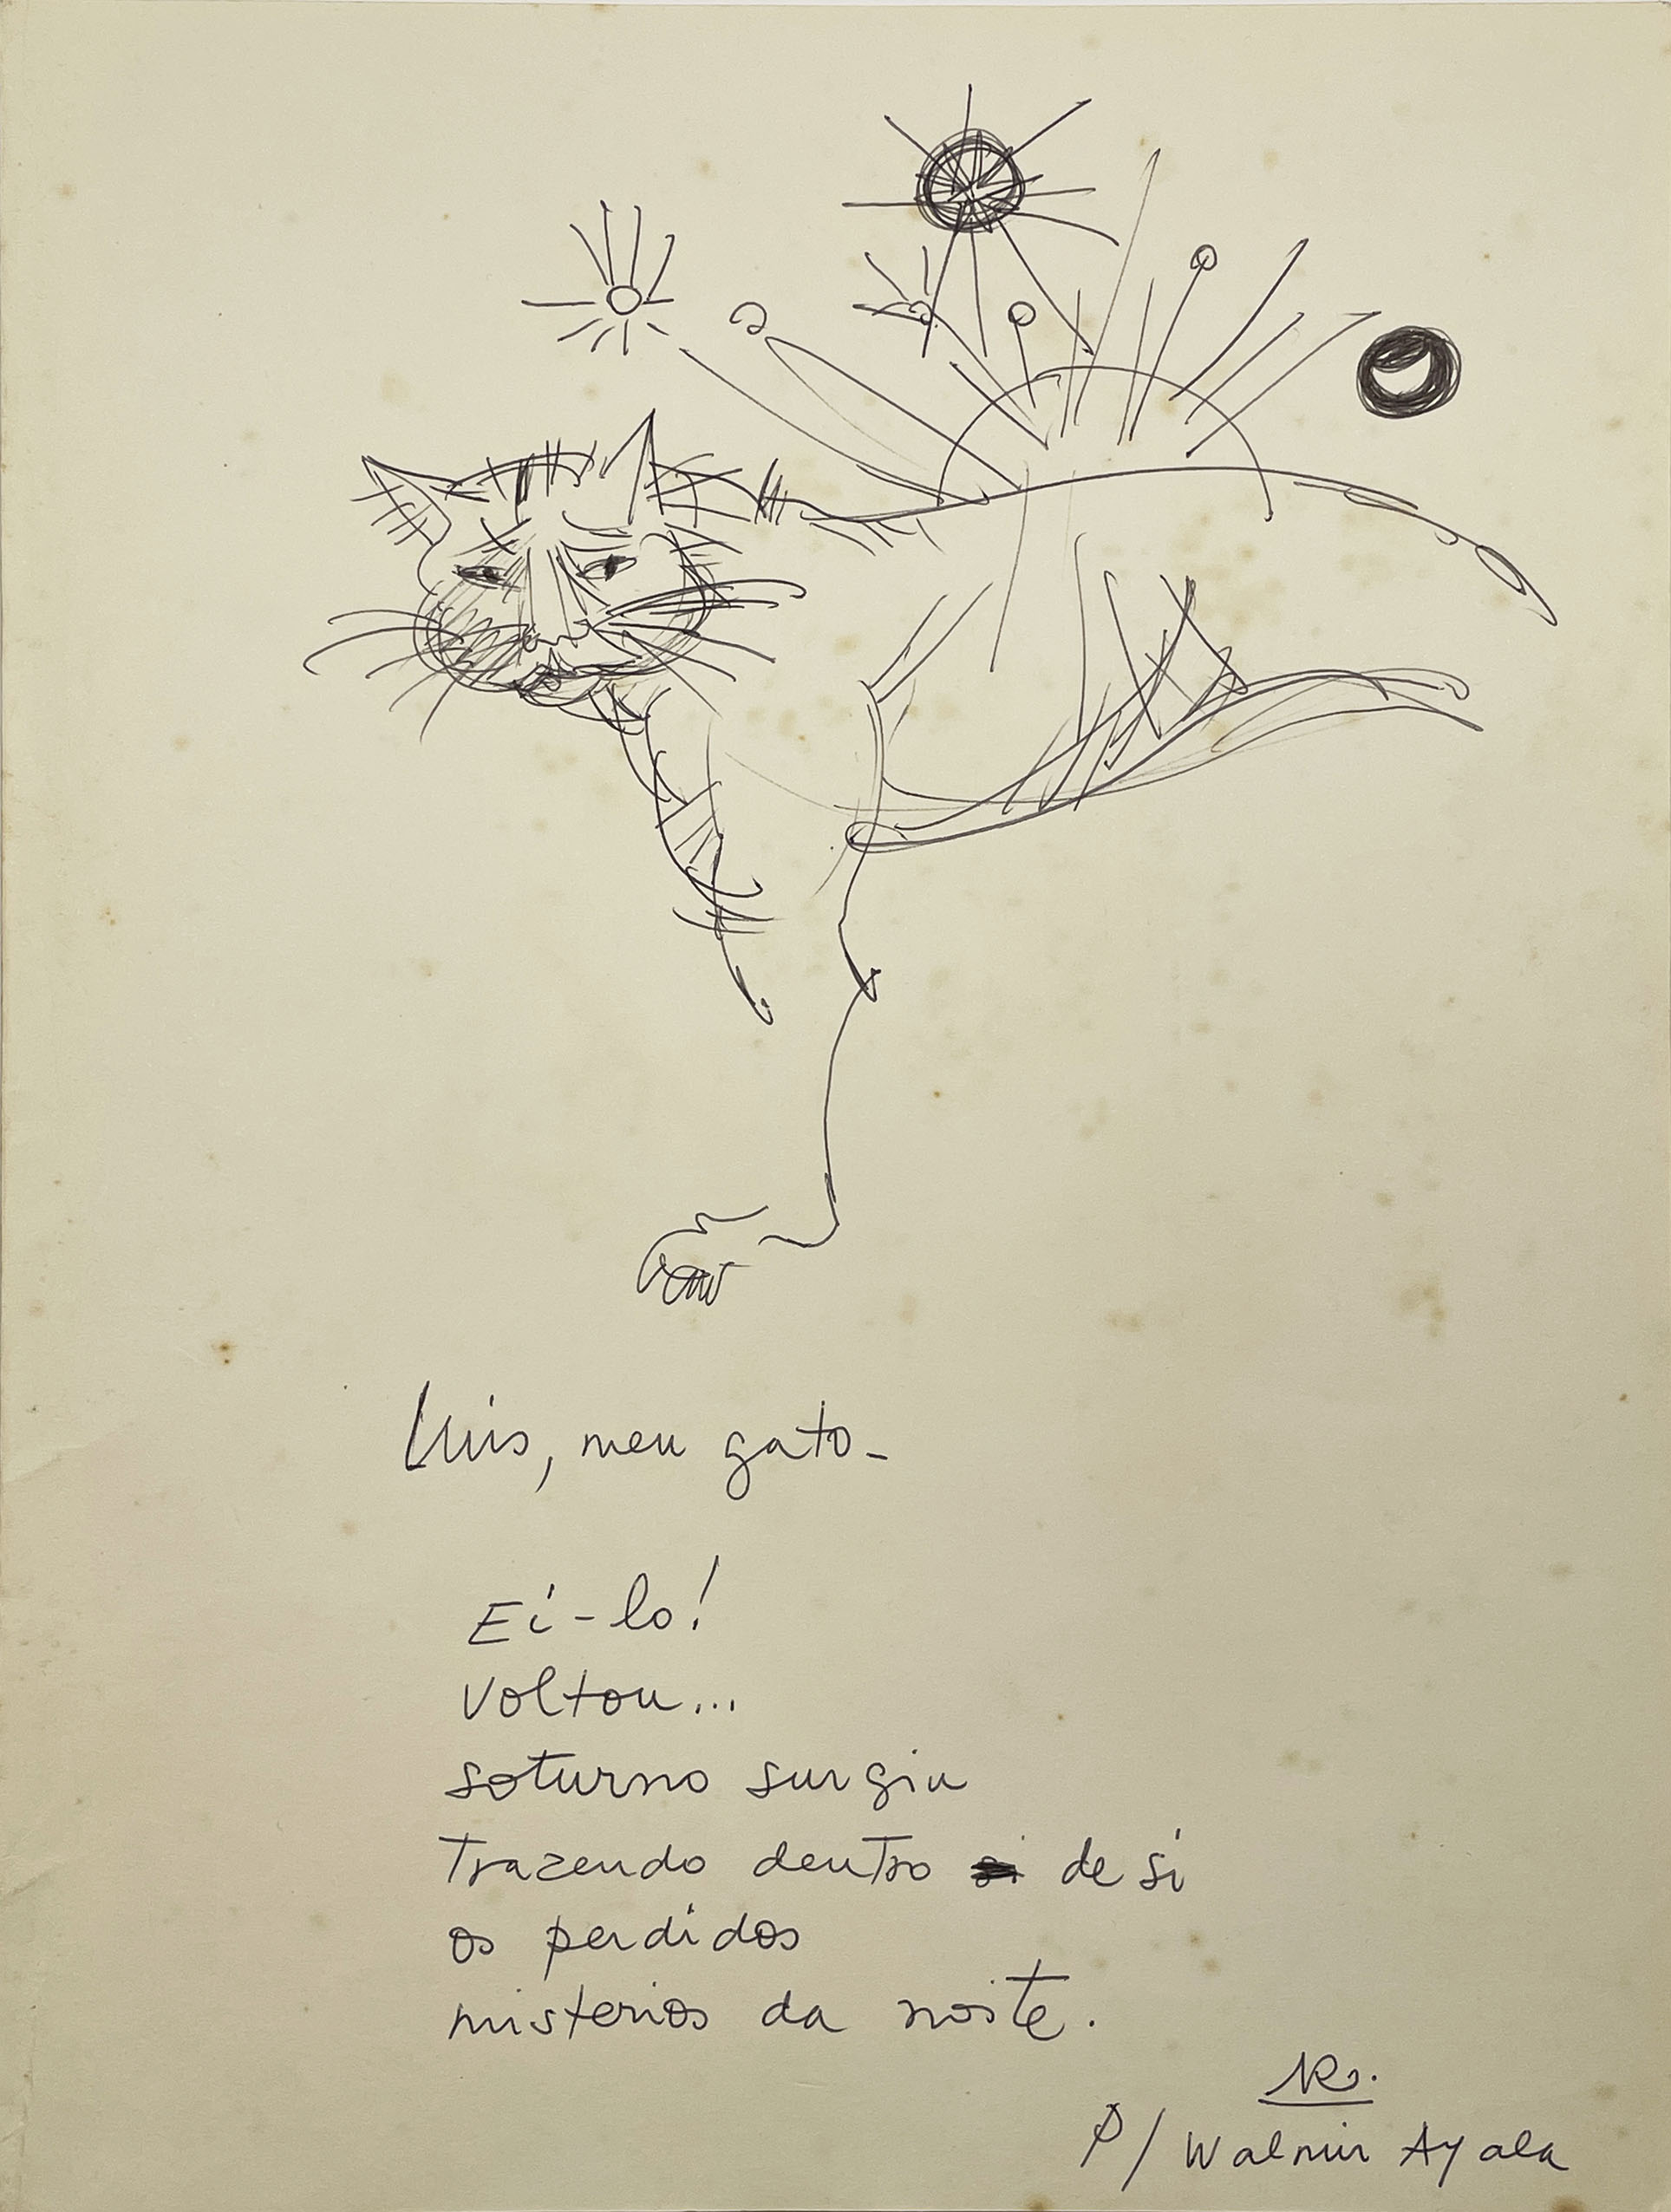 Luis, meu gato-
Ei-lo!
Voltou...
soturno surgiu
Trazendo dentro de si
os perdidos
misterios da noite.
P/ Walmir Ayala